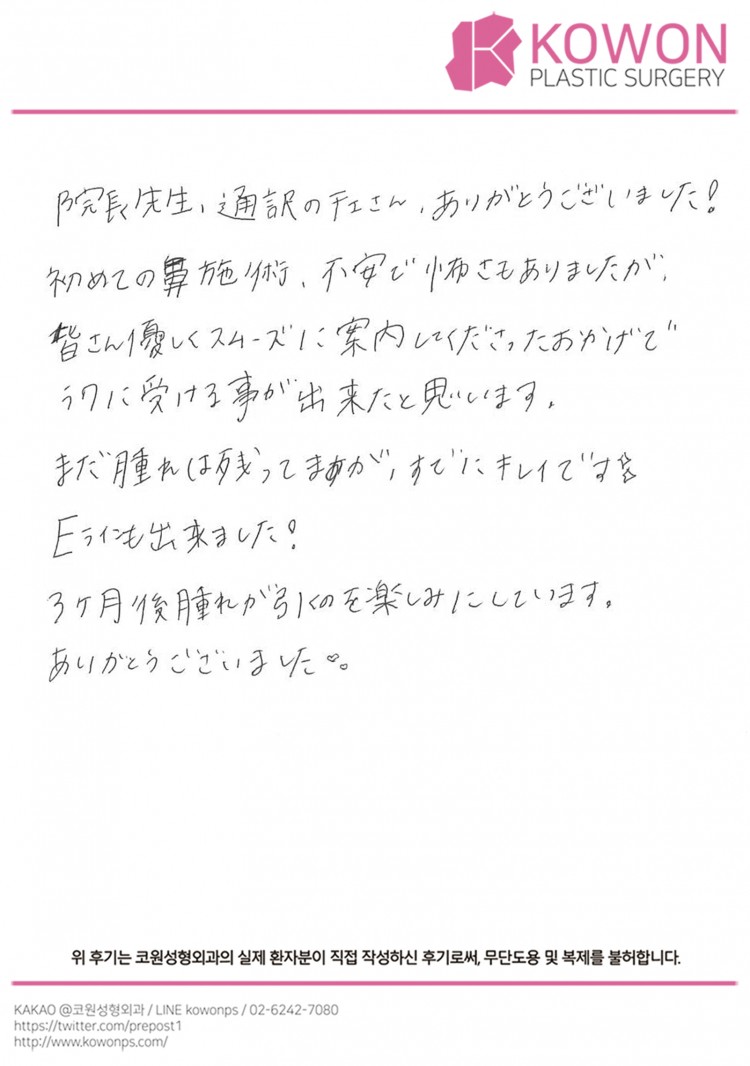 KOWON
PLASTIC SURGERY
院長先生、通訳のチェさん、ありがとうございました!
初めての鼻施術、不安で怖さもありましたが、
皆さん優しくスムーズに案内してくださったおかげで
ラクに受ける事が出来たと思います。
まだ腫れは残ってますが、すでにキレイです☆
Eラインも出来ました!
3ヶ月後腫れが引くのを楽しみにしています。
ありがとうございました♡。
위 후기는 코원성형외과의 실제 환자분이 직접 작성하신 후기로써, 무단도용 및 복제를 불허합니다.
KAKAO @코원성형외과 / LINE kowonps / 02-6242-7080
https://twitter.com/prepost1
http://www.kowonps.com/